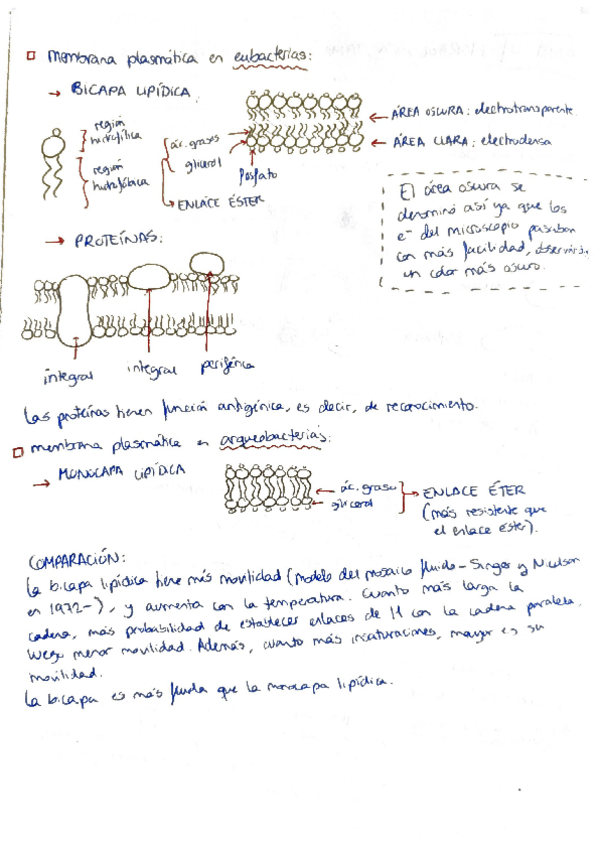 membrana plasmática en eubacterias:
→ BICAPA LIPÍDICA.
región
hidrofílica
región
hidrofóbica
ác. grasos
glicerol
→ ENLACE ÉSTER
fosfato
← ÁREA OSCURA: electrotransparente
← ÁREA CLARA: electrodensa
El área oscura se
denominó así ya que los
e⁻ del microscopio pasaban
con más facilidad,
un color más oscuro.
→ PROTEÍNAS:
integral
integral
periférica
Las proteínas tienen función antigénica, es decir, de reconocimiento.
membrana plasmática en arqueobacterias:
→ MONOCAPA LIPÍDICA
ác. graso
glicerol
ENLACE ÉTER
(más resistente que
el enlace éster).
COMPARACIÓN:
La bicapa lipídica tiene más movilidad (modelo del mosaico fluido - Singer y Nicolson
en 1972-), y aumenta con la temperatura. Cuanto más larga la
cadena, más probabilidad de establecer enlaces de H con la cadena paralela.
luego menor movilidad. Además, cuanto más insaturaciones, mayor es su
movilidad.
La bicapa es más fluida que la monocapa lipídica.